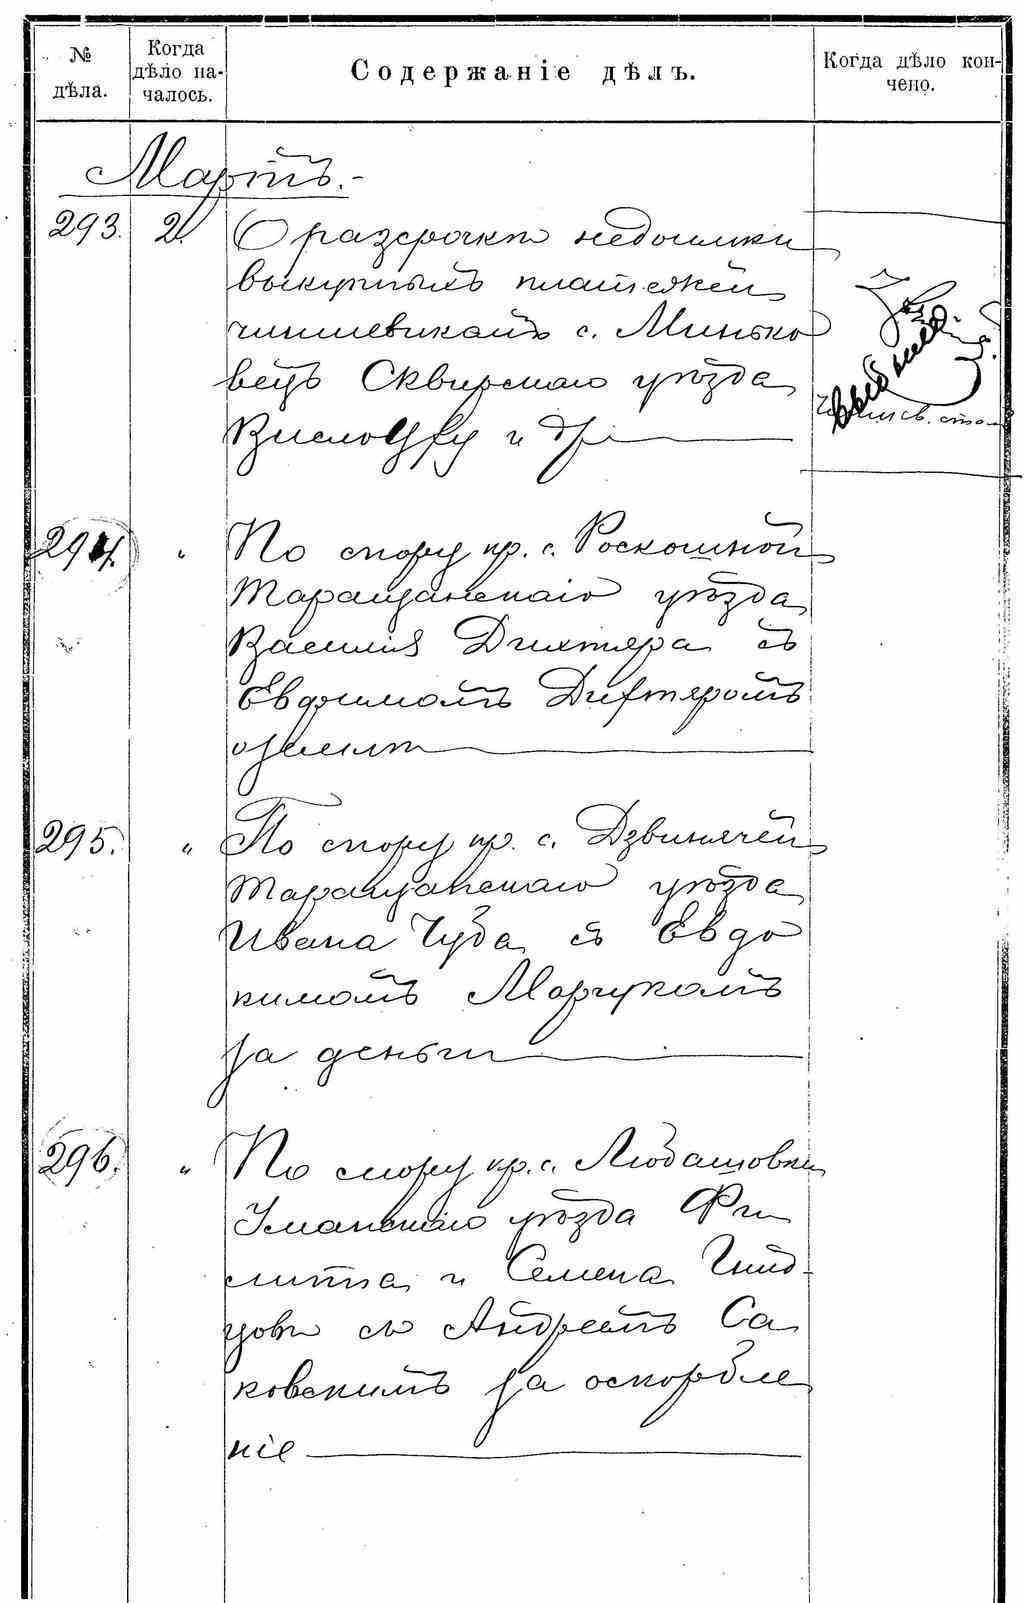 № дѣла.
Когда дѣло на-
чалось.
Содержаніе дѣлъ.
Когда дѣло кон-
чено.
Мартъ.-
293. 2. О разсрочкѣ недоимки
выкупныхъ платежей
чиншевикамъ с. Минько
вецъ Сквирскаго уѣзда
и др
294. " По спору кр. с. Роскошной
Таращанскаго уѣзда
Василія Дихтяра съ
Евфимомъ Дихтяромъ
о землѣ
295. " По спору кр. с. Дзвинячей
Таращанскаго уѣзда
Ивана Чуба съ Евдо
кимомъ Марчукомъ
за деньги
296. " По спору кр. с. Любашовки
Уманскаго уѣзда Фи
липпа и Семена
со Андреемъ Са
ковскимъ за оскорбле
ніе